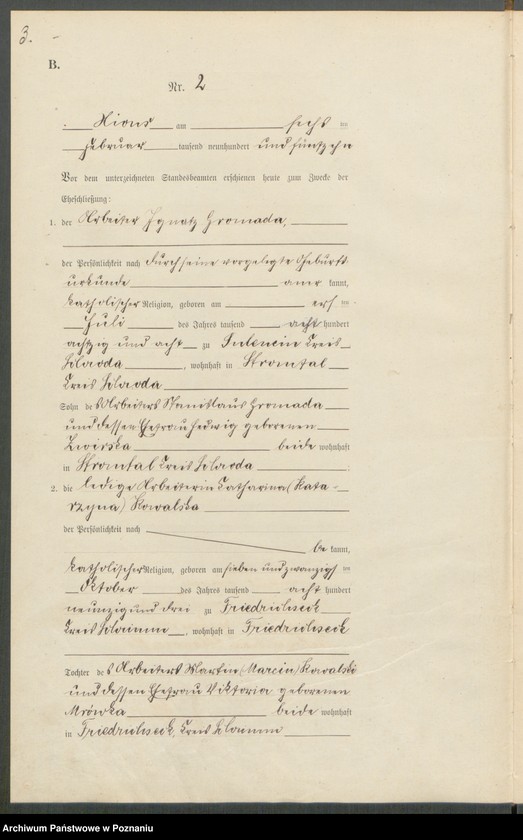 3.
B.
Nr. 2
Xions am sechs ten
Februar tausend neunhundert und fünfzehn
Vor dem unterzeichneten Standesbeamten erschienen heute zum Zwecke der
Eheschließung:
1. der Arbeiter Ignatz Gromada,
der Persönlichkeit nach durch seine vorgelegte Geburts-
urkunde aner kannt,
katholischer Religion, geboren am elf ten
Juli des Jahres tausend acht hundert
achtzig und acht zu Kreis
Schroda, wohnhaft in Stromtal
Kreis Schroda
Sohn des Arbeiters Stanislaus Gromada
und dessen Ehefrau Hedwig geborenen
Zwirska beide wohnhaft
in Stromtal Kreis Schroda
2. die ledige Arbeiterin Catharina (Kata-
rzyna) Kowalska
der Persönlichkeit nach
be kannt,
katholischer Religion, geboren am sieben und zwanzigs ten
Oktober des Jahres tausend acht hundert
neunzig und drei zu Friedrichseck
Kreis Schrimm, wohnhaft in Friedrichseck
Tochter des Arbeiters Martin (Marcin) Kowalski
und dessen Ehefrau Viktoria geborenen
Mrówka beide wohnhaft
in Friedrichseck, Kreis Schrimm
Archiwum Państwowe w Poznaniu